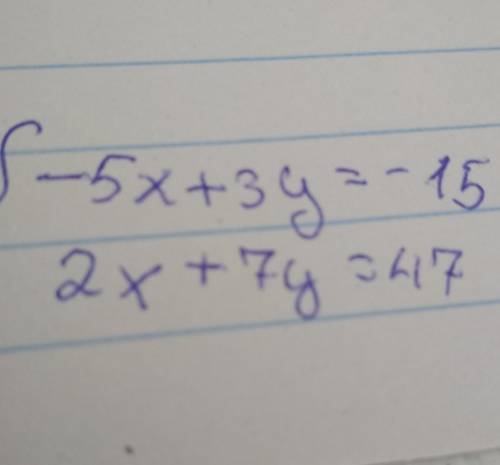 -5x+3y=-15
2x+7y=47